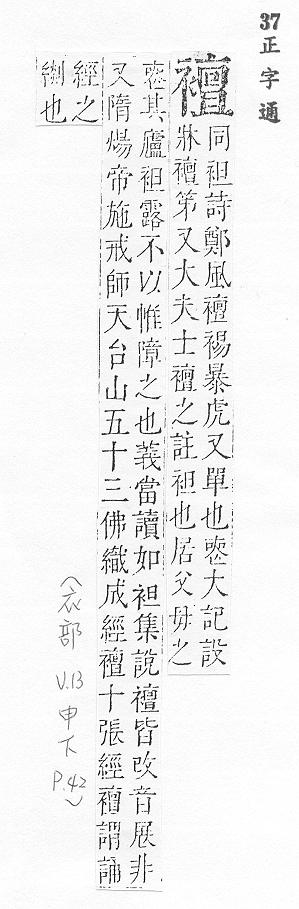 37正字通
襢
同袒詩鄭風襢裼暴虎又單也䘮大記設
牀襢第又大夫士襢之註袒也居父母之
䘮其廬袒露不以帷障之也義當讀如袒集說襢皆改音展非
又隋煬帝施戒師天台山五十三佛織成經襢十張經襢謂誦
經之
㡡也
(衣部 V.13 申下 P.42)